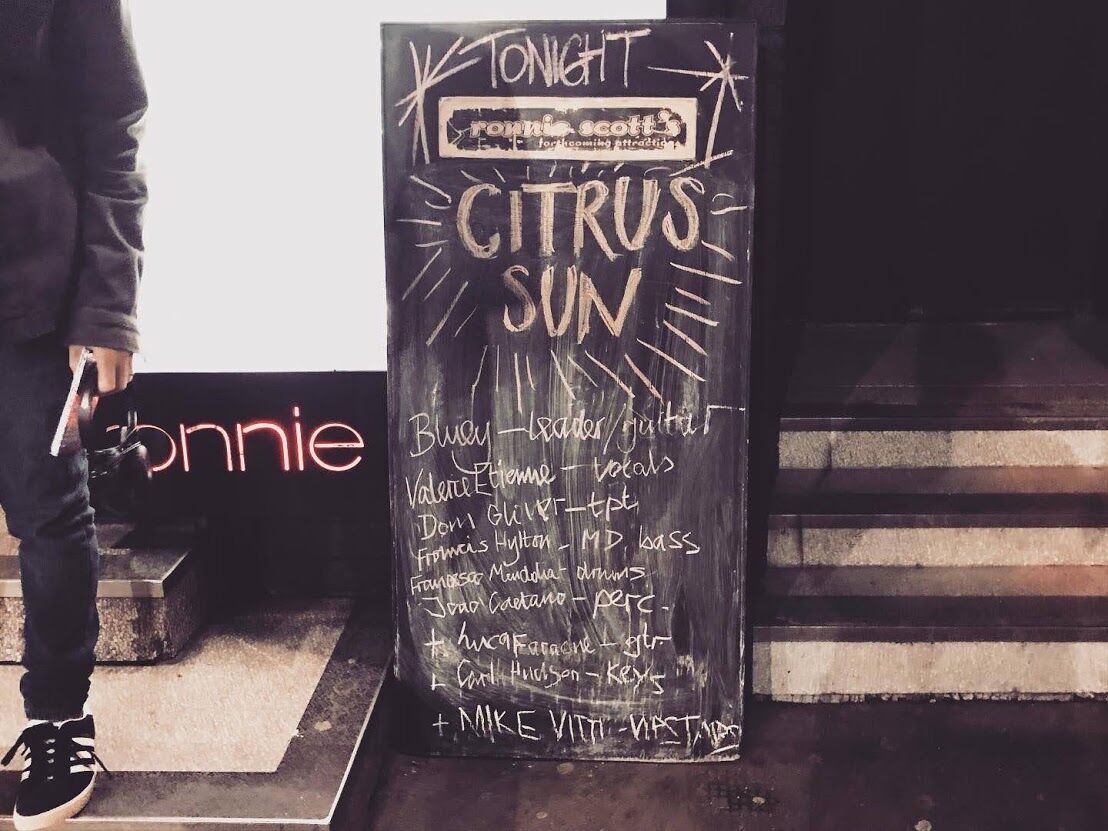 TONIGHT
ronnie scott's
forthcoming attractions
CITRUS
SUN
Bluey - leader/guitar
Valerie Etienne - vocals
Dom Gliver - tpt
Francis Hylton - MD bass
Francesco Mendolia - drums
João Caetano - perc.
+ Luca Faraone - gtr
+ Carl Hudson - keys
+ MIKE VITTI
onnie